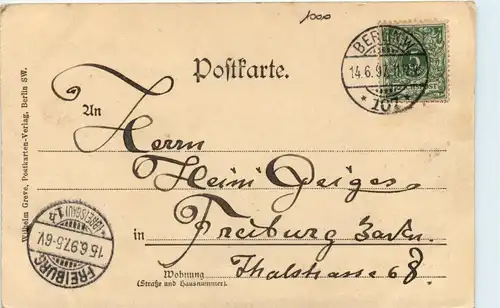 1000
BERLIN.W.
14.6.97
*107*
Postkarte.
An
Herrn
Heini Geiges
in Freiburg Baden.
Wohnung
(Straße und Hausnummer).
Thalstrasse 68.
Wilhelm Greve, Postkarten-Verlag, Berlin SW.
FREIBURG
15.6.97.5-6V.
(BREISGAU) 1.